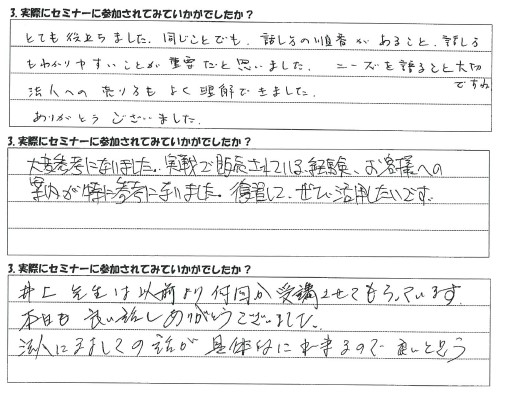 3. 実際にセミナーに参加されてみていかがでしたか？
とても役立ちました。同じことでも、話し方の順番があること、話し方
もわかりやすいことが重要だと思いました。ニーズを語ること大切
ですね
法人への売り方もよく理解できました。
ありがとうございました。
3. 実際にセミナーに参加されてみていかがでしたか？
大変参考になりました。実戦で販売されている経験、お客様への
案内が特に参考になりました。復習して、ぜひ活用したいです。
3. 実際にセミナーに参加されてみていかがでしたか？
井上先生は以前より何回か受講させてもらっています。
本日も良い話しありがとうございました。
法人にましての話が具体的に出来るので良いと思う